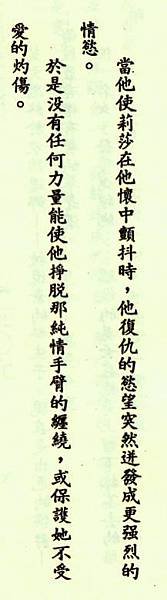 當他使莉莎在他懷中顫抖時，他復仇的慾望突然迸發成更强烈的
情慾。
於是没有任何力量能使他掙脱那純情手臂的纏繞，或保護她不受
愛的灼傷。